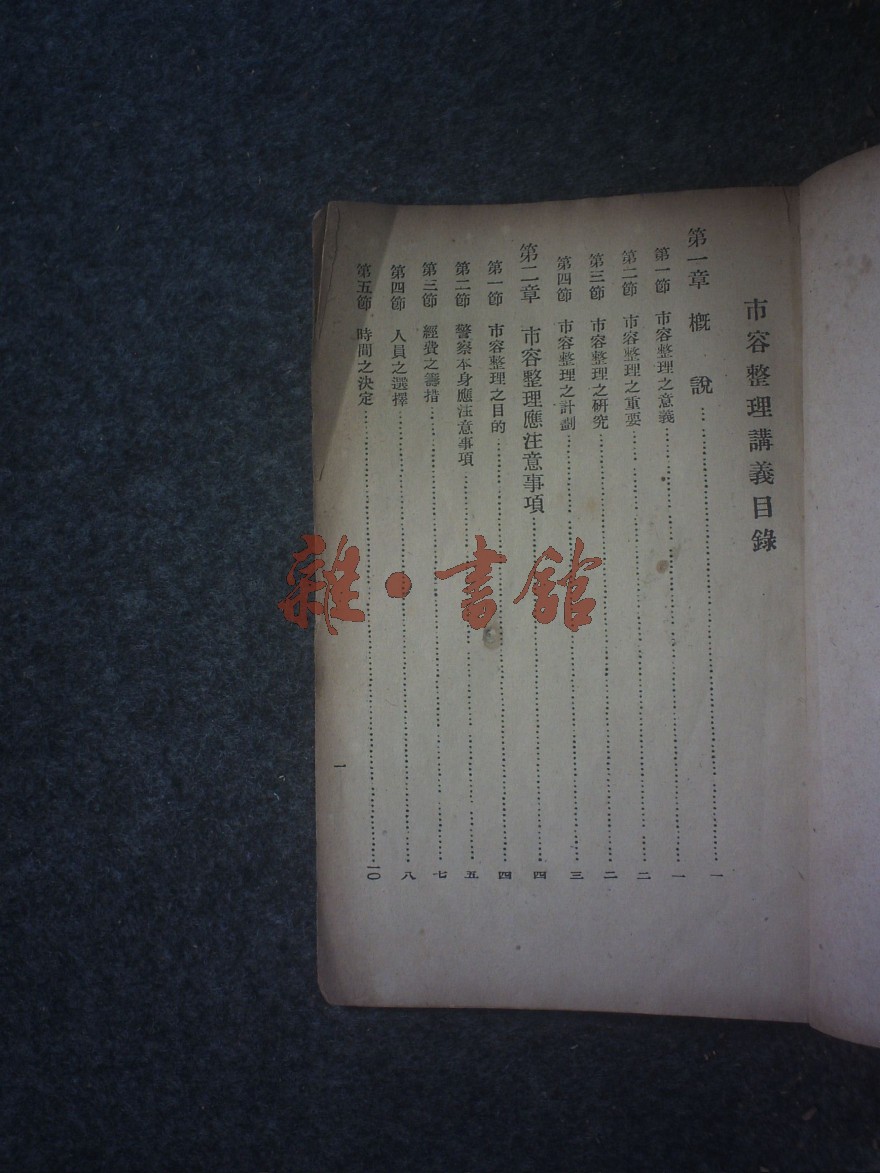 市容整理講義目錄
第一章 概說…………一
第一節 市容整理之意義…………一
第二節 市容整理之重要…………二
第三節 市容整理之研究…………二
第四節 市容整理之計劃…………三
第二章 市容整理應注意事項…………四
第一節 市容整理之目的…………四
第二節 警察本身應注意事項…………五
第三節 經費之籌措…………七
第四節 人員之選擇…………八
第五節 時間之決定…………一〇
一
雜·書館